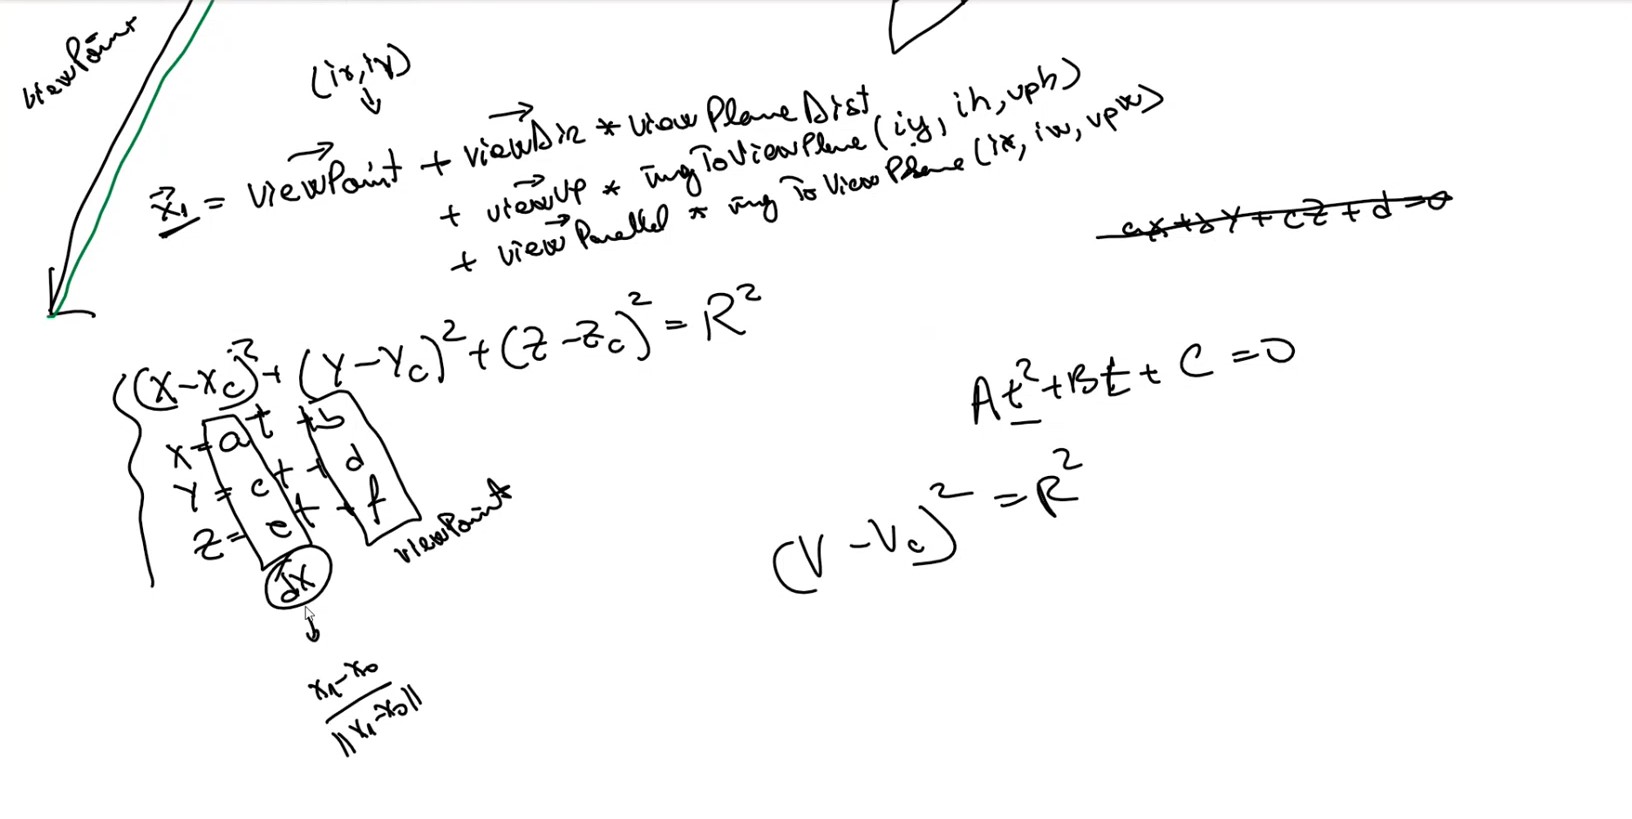 viewPoint
(ix, iy)
x₁ = viewPoint + viewDir * viewPlaneDist
+ viewUp * imgToViewPlane (iy, ih, vph)
+ viewParallel * imgToViewPlane (ix, iw, vpw)
ax + by + cz + d = 0
(x-x_c)² + (y-y_c)² + (z-z_c)² = R²
x = at + b
y = ct + d
z = et + f
viewPoint
dx
x₁-x₀
‖x₁-x₀‖
At² + Bt + C = 0
(V - V_c)² = R²